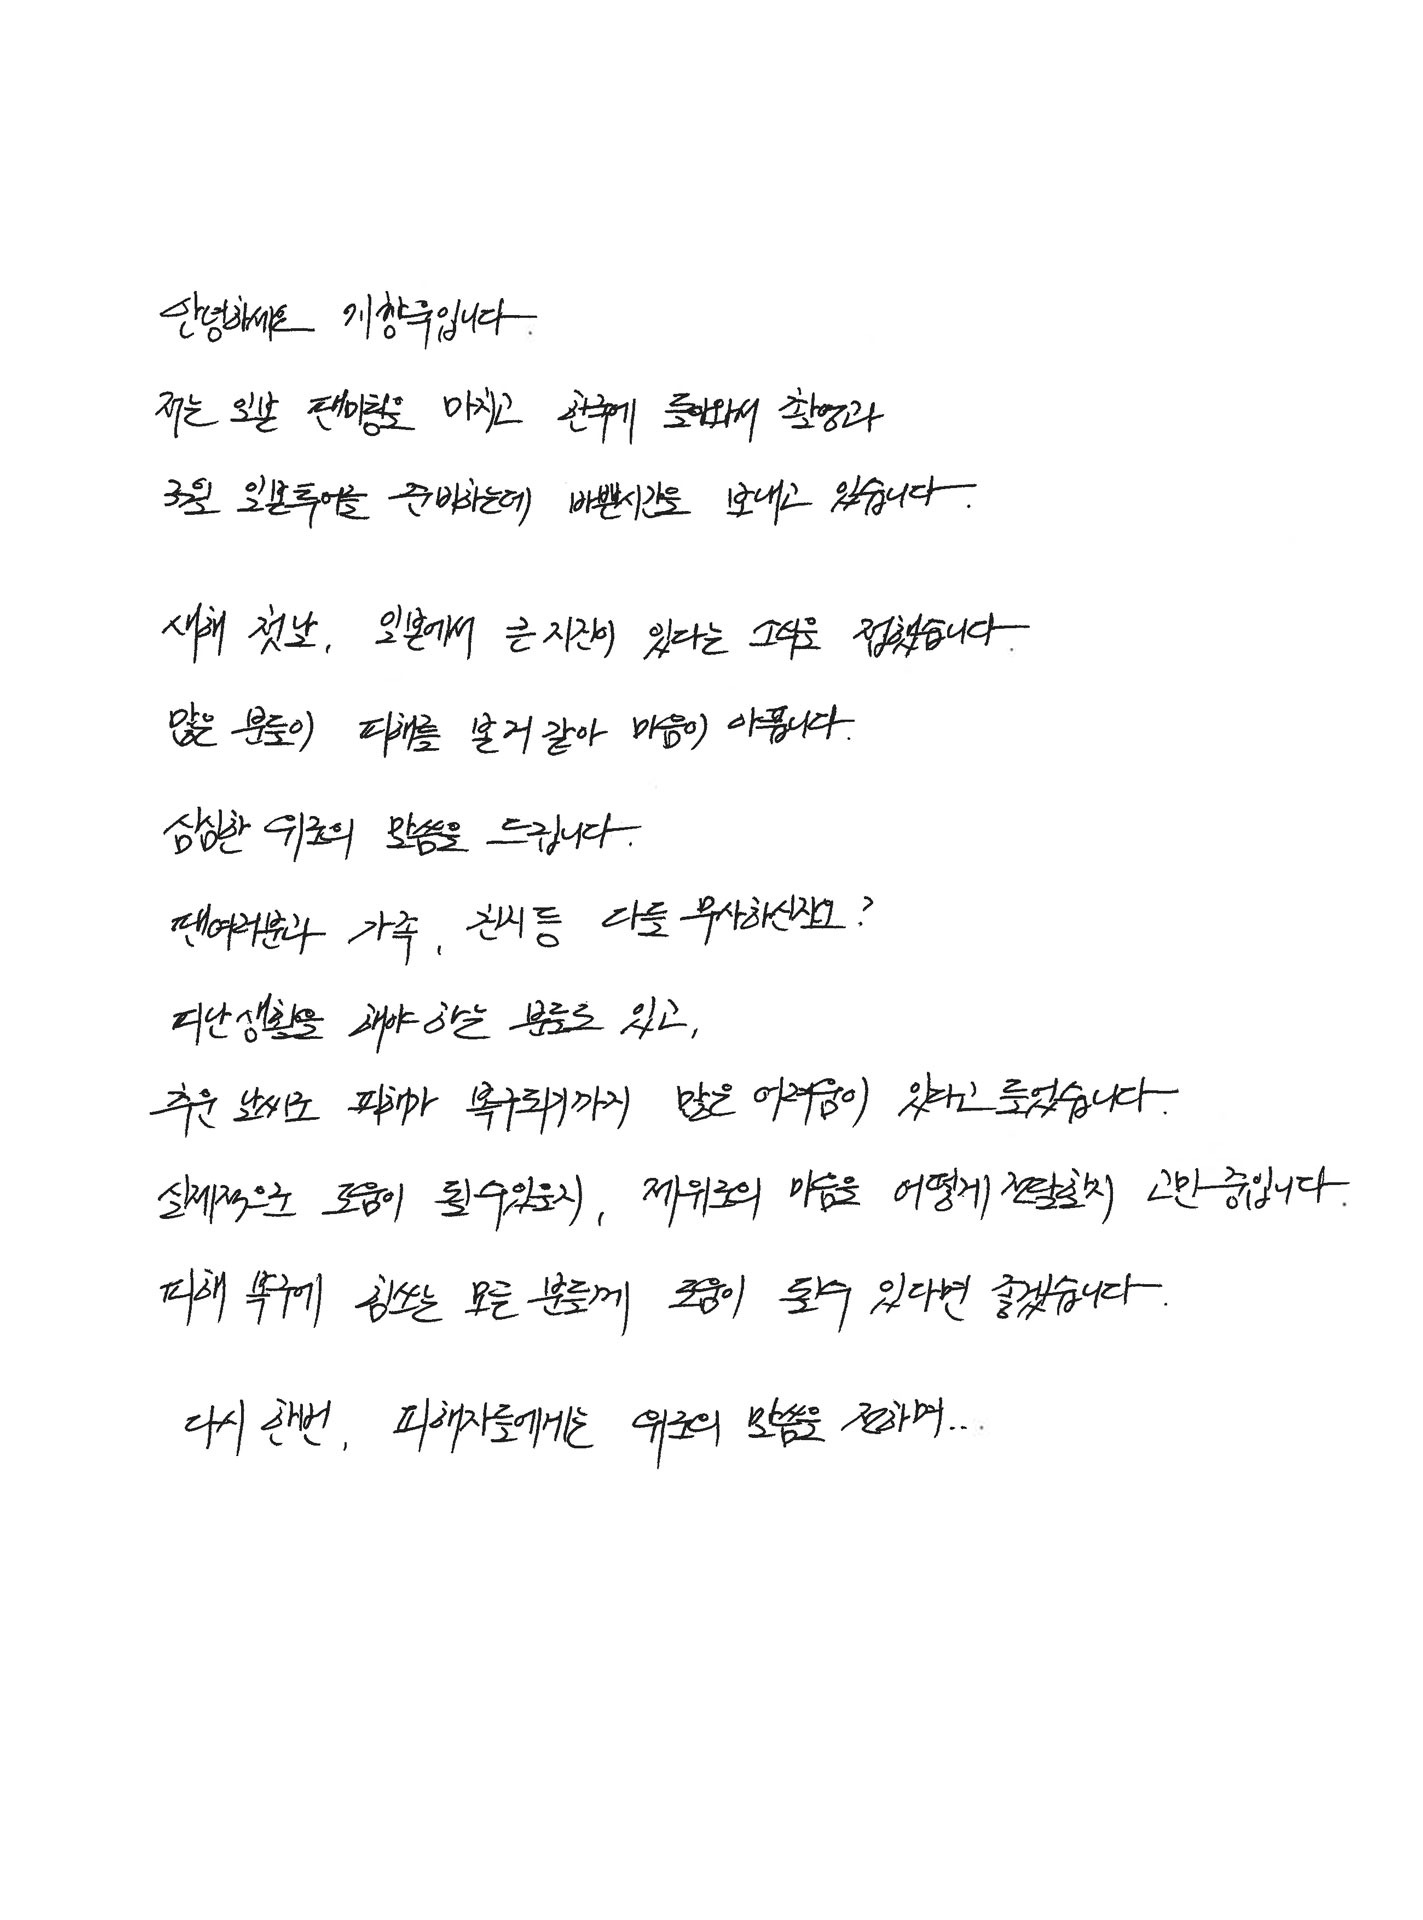 안녕하세요 지창욱입니다.
저는 일본 팬미팅을 마치고 한국에 돌아와서 촬영과
3월 일본투어를 준비하는데 바쁜시간을 보내고 있습니다.
새해 첫날, 일본에서 큰 지진이 있다는 소식을 접했습니다.
많은 분들이 피해를 본거 같아 마음이 아픕니다.
심심한 위로의 말씀을 드립니다.
팬여러분과 가족, 친지등 다들 무사하신지요?
피난생활을 해야하는 분들도 있고,
추운 날씨도 피해가 복구되기까지 많은 어려움이 있다고 들었습니다.
실제적으로 도움이 될수있을지, 제위로의 마음을 어떻게 전달할지 고민중입니다.
피해 복구에 힘쓰는 모든 분들께 도움이 될수 있다면 좋겠습니다.
다시 한번, 피해자들에게는 위로의 말씀을 전하며...